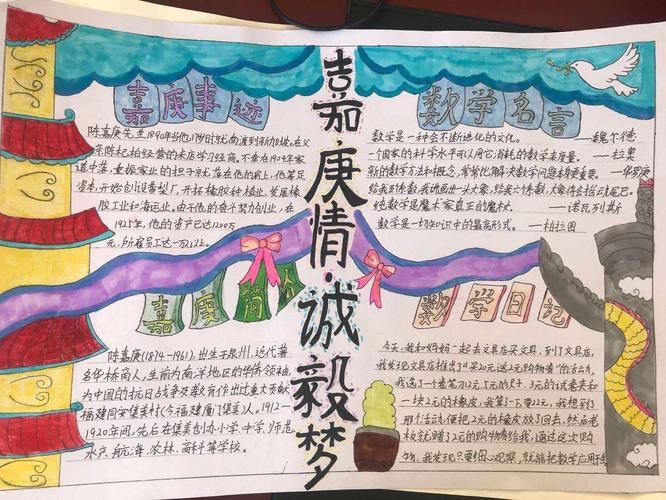 嘉庚情·诚毅梦
嘉庚事迹
陈嘉庚先生1890年当他17岁时就南渡到新加坡,在父
亲陈杞柏经营的米店学习经商。不幸在1904年家
道中落,重振家业的担子就落在他的肩上,他筹足
资本,开始创业
黄梨厂,开拓橡胶种植业,发展橡
胶工业和海运业。由于他的奋斗努力创业,在
1925年,他的资产已达1200万
元,所雇员工达一万以上。
数学名言
数学是一种会不断进化的文化。 ——魏尔德
一个国家的科学水平可以用它消耗的数学来度量。 ——拉奥
新的数学方法和概念,常常比解决数学问题本身更重要。 ——华罗庚
给我五个系数,我讲画出一头大象;给我六个系数,大象将会摇动尾巴。
纯数学是魔术家真正的魔杖。 ——诺瓦列斯
数学是一切知识中的最高形式。 ——柏拉图
嘉庚简介
陈嘉庚(1874-1961),出生于泉州,近代著
名华侨商人,生前为南洋地区的华侨领袖,
为中国的抗日战争及教育作出过重大贡献
福建同安集美村(今福建厦门集美)人。1912—
1920年间,先后在集美创办小学、中学、师范、
水产、航海、农林、商科等学校。
数学日记
今天,我和妈妈一起去文具店买文具,到了文具店,
我发现文具店推出了“买20元送2元购物券”的活动,
我选了一个笔刀12.5元的尺、3元的
和
一块2元的橡皮,我算了一下要22元,我想到
那个活动,便把2元的橡皮放了回去,然后老
板就赠了2元的购物券给我,通过这次购
物,我发现只要细心观察,就能把数学应用